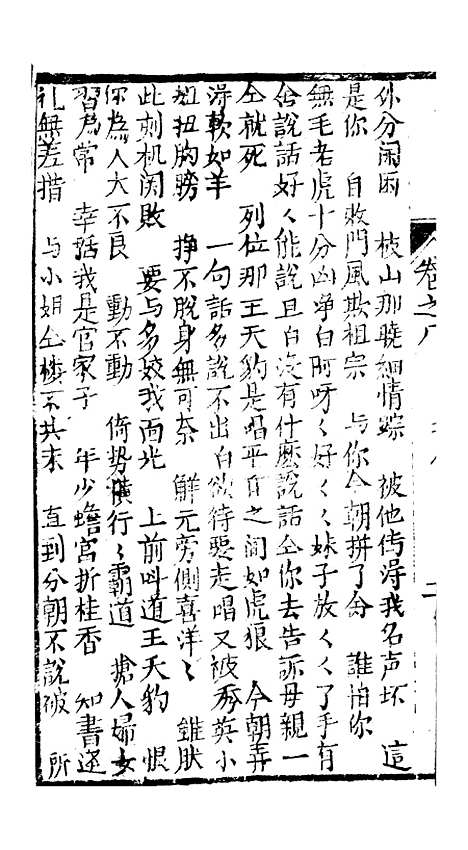 外分闲雨 枝山那曉細情踪 被他传得我名声坏 這
是你 自敗門風欺祖宗 与你今朝拚了命 誰怕你
無毛老虎十分凶唕白阿呀〻好〻〻妹子放〻〻了手有
舍說話好〻能說且白没有什麽說話仝你去告訴母親一
仝就死 列位那王天豹是唱平日之间如虎狼 今朝弄
得軟如羊 一句話多說不出白欲待要走唱又被秀英小
姐扭胸膀 挣不脫身無可奈 觧元旁側喜洋〻 雖肤
此刻机関敗 要与多姣我面光 上前叫道王天豹 恨
你為人大不良 動不動 倚势横行〻霸道 搶人婦女
習為常 幸話我是官家子 年少蟾宫折桂香 知書逹
礼無差措 与小姐仝楼不共床 直到分朝不說破 所
卷之八
二